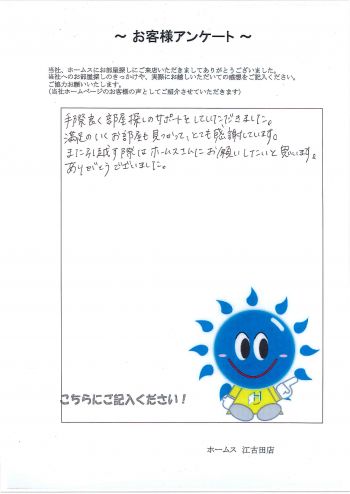 ～ お客様アンケート ～
当社、ホームスにお部屋探しにご来店いただきましてありがとうございました。
当社へのお部屋探しのきっかけや、実際にお越しいただいての感想をご記入ください。
ご協力お願いいたします。
（当社ホームページのお客様の声としてご紹介させていただきます）
手際良く部屋探しのサポートをしていただきました。
満足のいくお部屋も見つかって、とても感謝しています。
また引越す際はホームスさんにお願いしたいと思います。
ありがとうございました。
H
こちらにご記入ください！
ホームス 江古田店